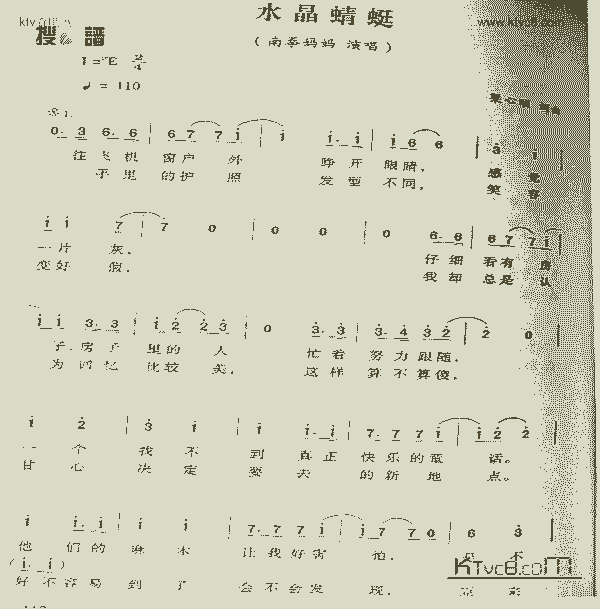 水晶蜻蜓
www.ktvc8.com
搜 谱
(南拳妈妈 演唱)
1=♭E 4/4
♩=110
0. 3 6. 6 | 6 7 7 i | i i. i | i 6 6 | 3 i
往飞机 窗户 外 睁开眼睛, 感觉
的护照 发型不同, 笑容
i i 7 | 7 0 0 | 0 0 | 0 6. 6 | 6 7 7 i
一片灰。 仔细看有
变好假。 我却总是认
i i 3. 3 | i 2 2 3 | 0 3. 3 | 3. 4 3 2 | 2 0
子,房子里的人 忙着努力跟随。
为回忆比较美。 这样算不算傻。
i 2 | 3 i | i i. i | 7. 7 7 i | i 2 2
一个找不到真正快乐的童话。
甘心决定要去的新地点。
i i. i | i i | 7. 7 7 i | i 7 7 0 | 6 3
他们的麻木让我好害怕,
(i. i)
好不容易到了会不会发现,
KTvc8.com